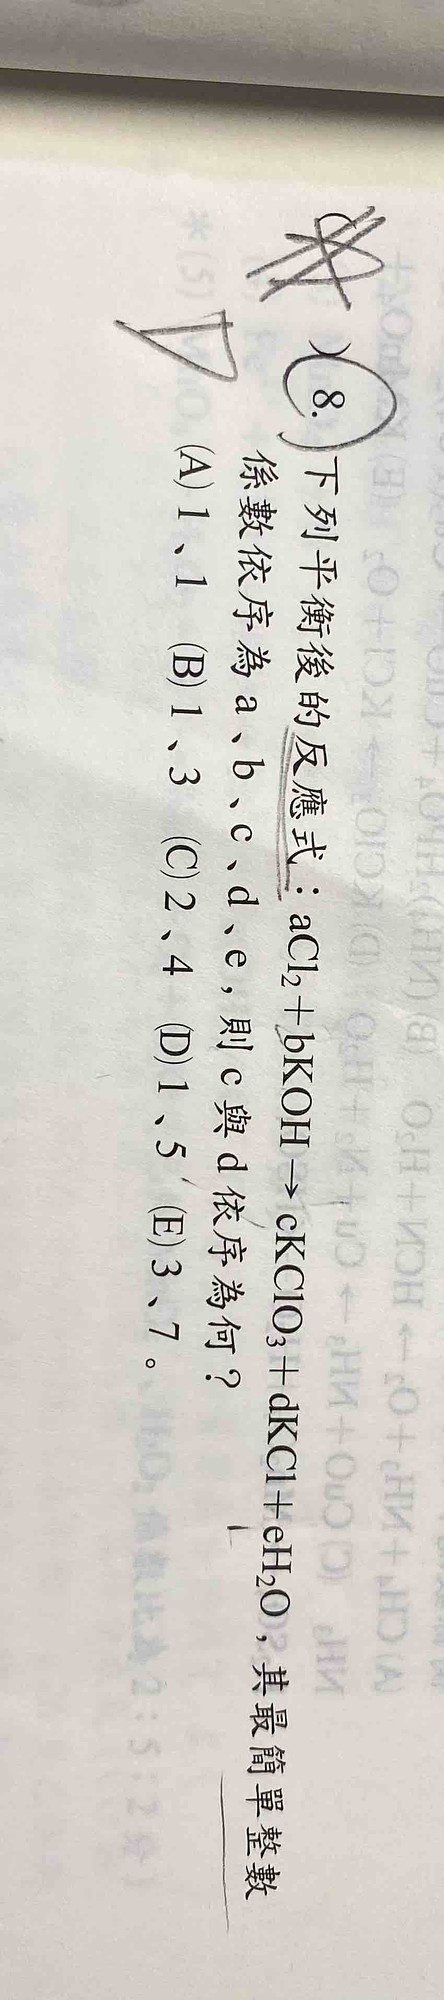 )8. 下列平衡後的反應式：aCl₂＋bKOH→cKClO₃＋dKCl＋eH₂O，其最簡單整數
係數依序為a、b、c、d、e，則c與d依序為何？
(A)1、1 (B)1、3 (C)2、4 (D)1、5 (E)3、7。